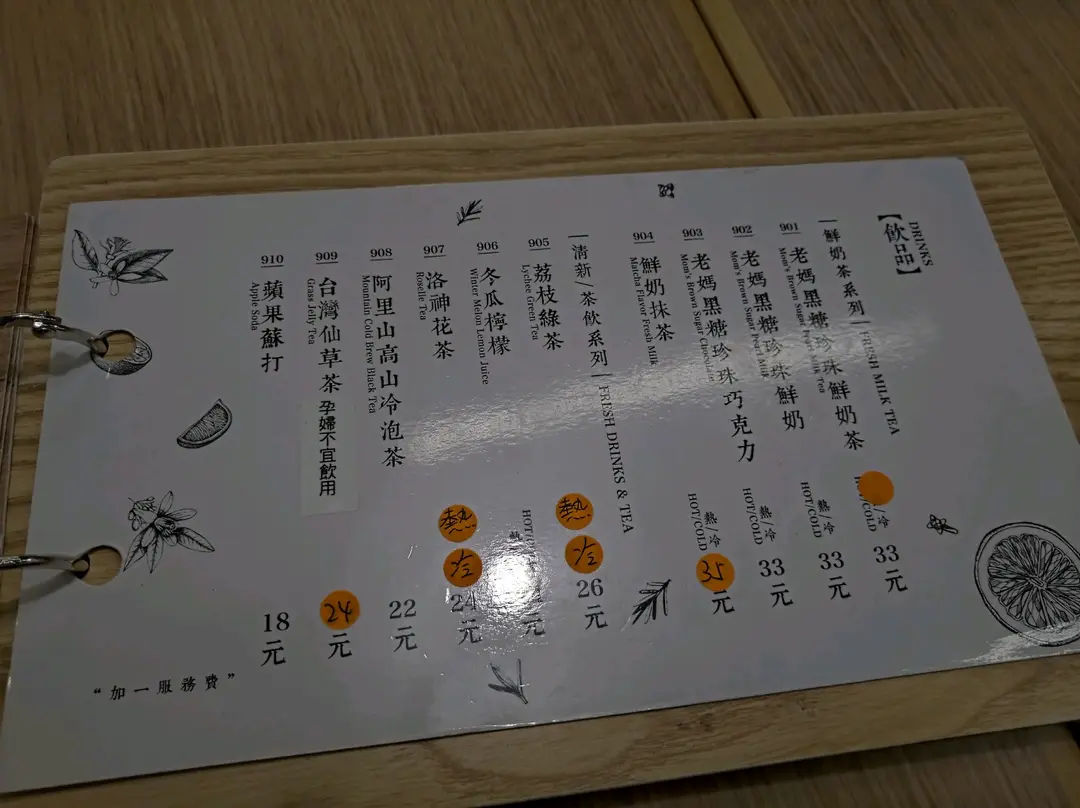 【飲品】
DRINKS
鮮奶茶系列 | FRESH MILK TEA
901
老媽黑糖珍珠鮮奶茶
Mom's Brown Sugar Pearl Milk Tea
冷
/COLD
33元
902
老媽黑糖珍珠鮮奶
Mom's Brown Sugar Pearl Milk
熱/冷
HOT/COLD
33元
903
老媽黑糖珍珠巧克力
Mom's Brown Sugar Chocolate
熱/冷
HOT/COLD
33元
904
鮮奶抹茶
Matcha Flavor Fresh Milk
熱/冷
HOT/COLD
35元
清新/茶飲系列 | FRESH DRINKS & TEA
905
荔枝綠茶
Lychee Green Tea
熱
冷
26元
906
冬瓜檸檬
Winter Melon Lemon Juice
熱
HOT
元
907
洛神花茶
Roselle Tea
熱
冷
24元
908
阿里山高山冷泡茶
Mountain Cold Brew Black Tea
22元
909
台灣仙草茶 孕婦不宜飲用
Grass Jelly Tea
24元
910
蘋果蘇打
Apple Soda
18元
“加一服務費”